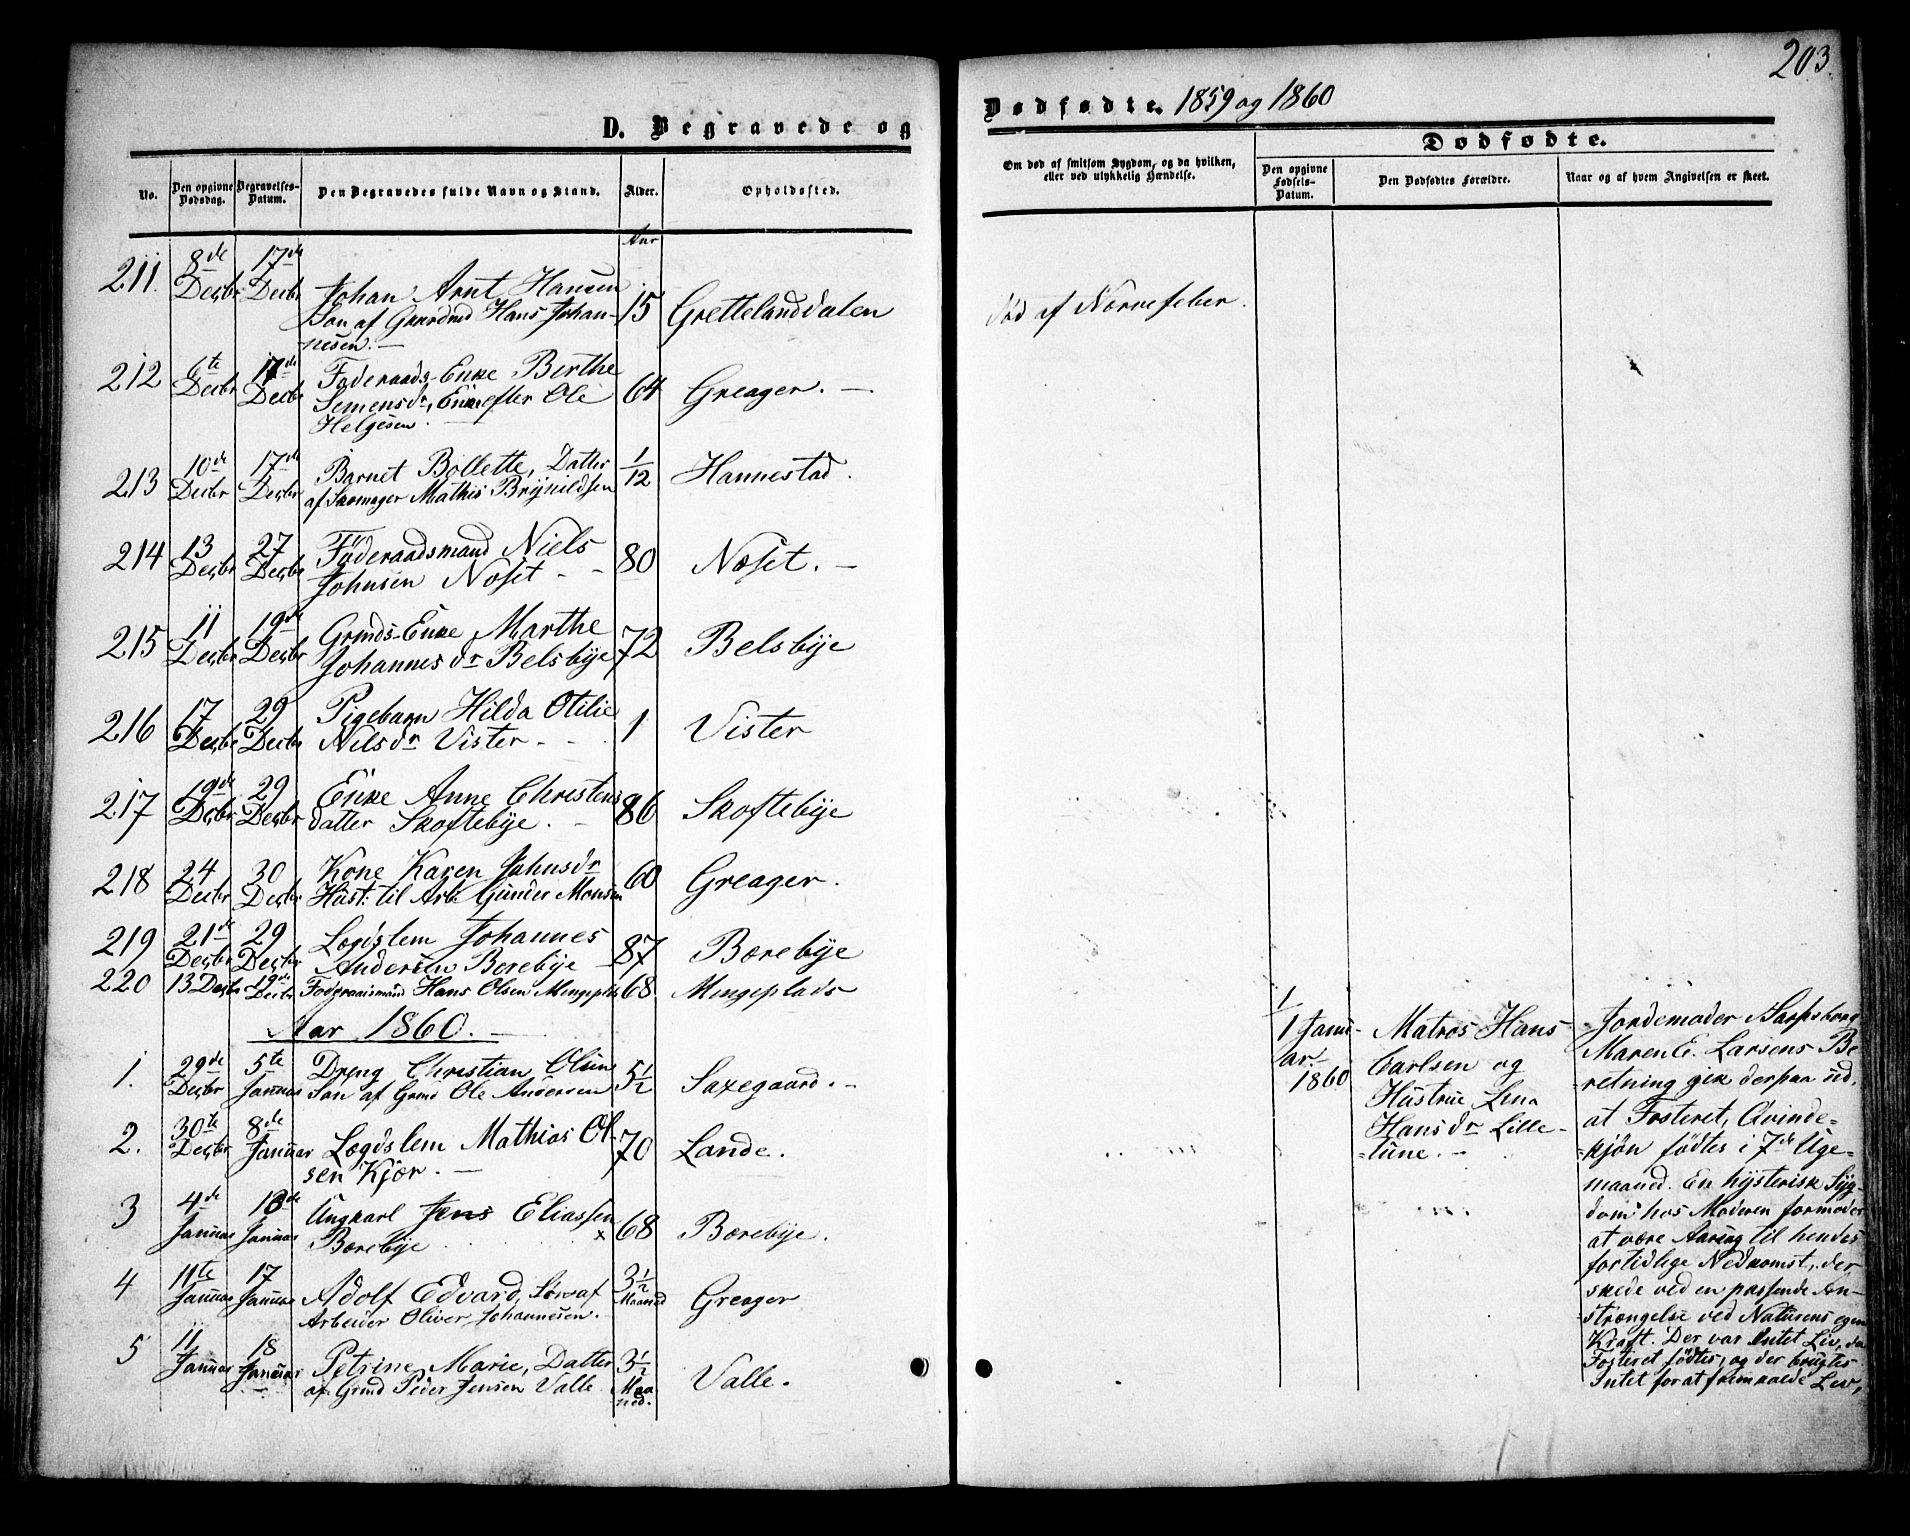 203.
D. Begravede og
Dødfødte. 1859 og 1860
No.
Den opgivne Dødsdag.
Begravelses-Datum.
Den Begravedes fulde Navn og Stand.
Alder.
Opholdssted.
Om død af smitsom Sygdom, og da hvilken,
eller ved ulykkelig Hændelse.
Dødfødte.
Den opgivne Fødsels-Datum.
Den Dødfødtes Forældre.
Naar og af hvem Angivelsen er skeet.
Aar
211. 8de Decbr 17de Decbr Johan Arnt Hansen 15 Grettelanddalen
Søn af Gaardmd Hans Johan-
nesen. —
Død af Nervefeber.
212 6te Decbr 17de Decbr Föderaads-Enke Berthe 64 Greager. —
Semensdr, Enke efter Ole
Helgesen.
213 10de Decbr 17de Decbr Barnet Bollette, Datter 1/12 Hannestad.
af Skomager Mathis Brynildsen
214 13 Decbr 27 Decbr Föderaadsmand Niels 80 Noset. —
Johnsen Noset - -
215 11 Decbr 19de Decbr Grmds-Enke Marthe 72 Belsbye
Johannesdr Belsbye
216 17 Decbr 29 Decbr Pigebarn Hilda Otilie 1 Vister
Nilsdr Vister - -
217 19de Decbr 29 Decbr Enke Anne Christens 86 Skoftebye
datter Skoftebye. -
218 24 Decbr 30 Decbr Kone Karen Johnsdr 60 Greager.
Hust: til Arb: Gunder Monsen
219 21de Decbr 29 Decbr Lægdslem Johannes 87 Bœrebye
Andersen Berebye
220 13 Decbr 19de Decbr Hans Olsen Mingeplds 68 Mingeplads
Aar 1860. —
1. 29de Decbr 5te Januar Dreng Christian Olsen 5½ Saxegaard. -
Søn af Grmd Ole Andersen
2. 30te Decbr 8de Januar Lægdslem Mathias Ol- 70 Lande.
sen Kjær. —
3 4de Januar 13de Januar Ungkarl Jens Eliassen 68 Bœrebye.
Bœrebye x
4 11te Januar 17 Januar Adolf Edvard, Søn af 3½ Maaned Greager
Arbeider Oliver Johannesen. -
5 11 Januar 18 Januar Petrine Marie, Datter 3½ Maaned. Valle.
af Grmd Peder Jensen Valle
1/
1 Janu-
ar.
1860
Matros Hans
Carlsen og
Hustrue Lena
Hansdr Lille-
tune. -
Jordemoder i Sarpsborg
Maren E. Larsens Be
retning gik derpaa ud,
at Fosteret, Qvinde-
kjön födtes i 7de Uge-
maaned. En hysterisk Syg-
dom hos Moderen formodes
at være Aarsag til hendes
fortidlige Nedkomst, der
skede ved en passende An-
strængelse ved Naturens egen
Kraft. Der var Intet Liv, da
Fosteret födtes, og der brugtes
Intet for at fremkalde Liv,